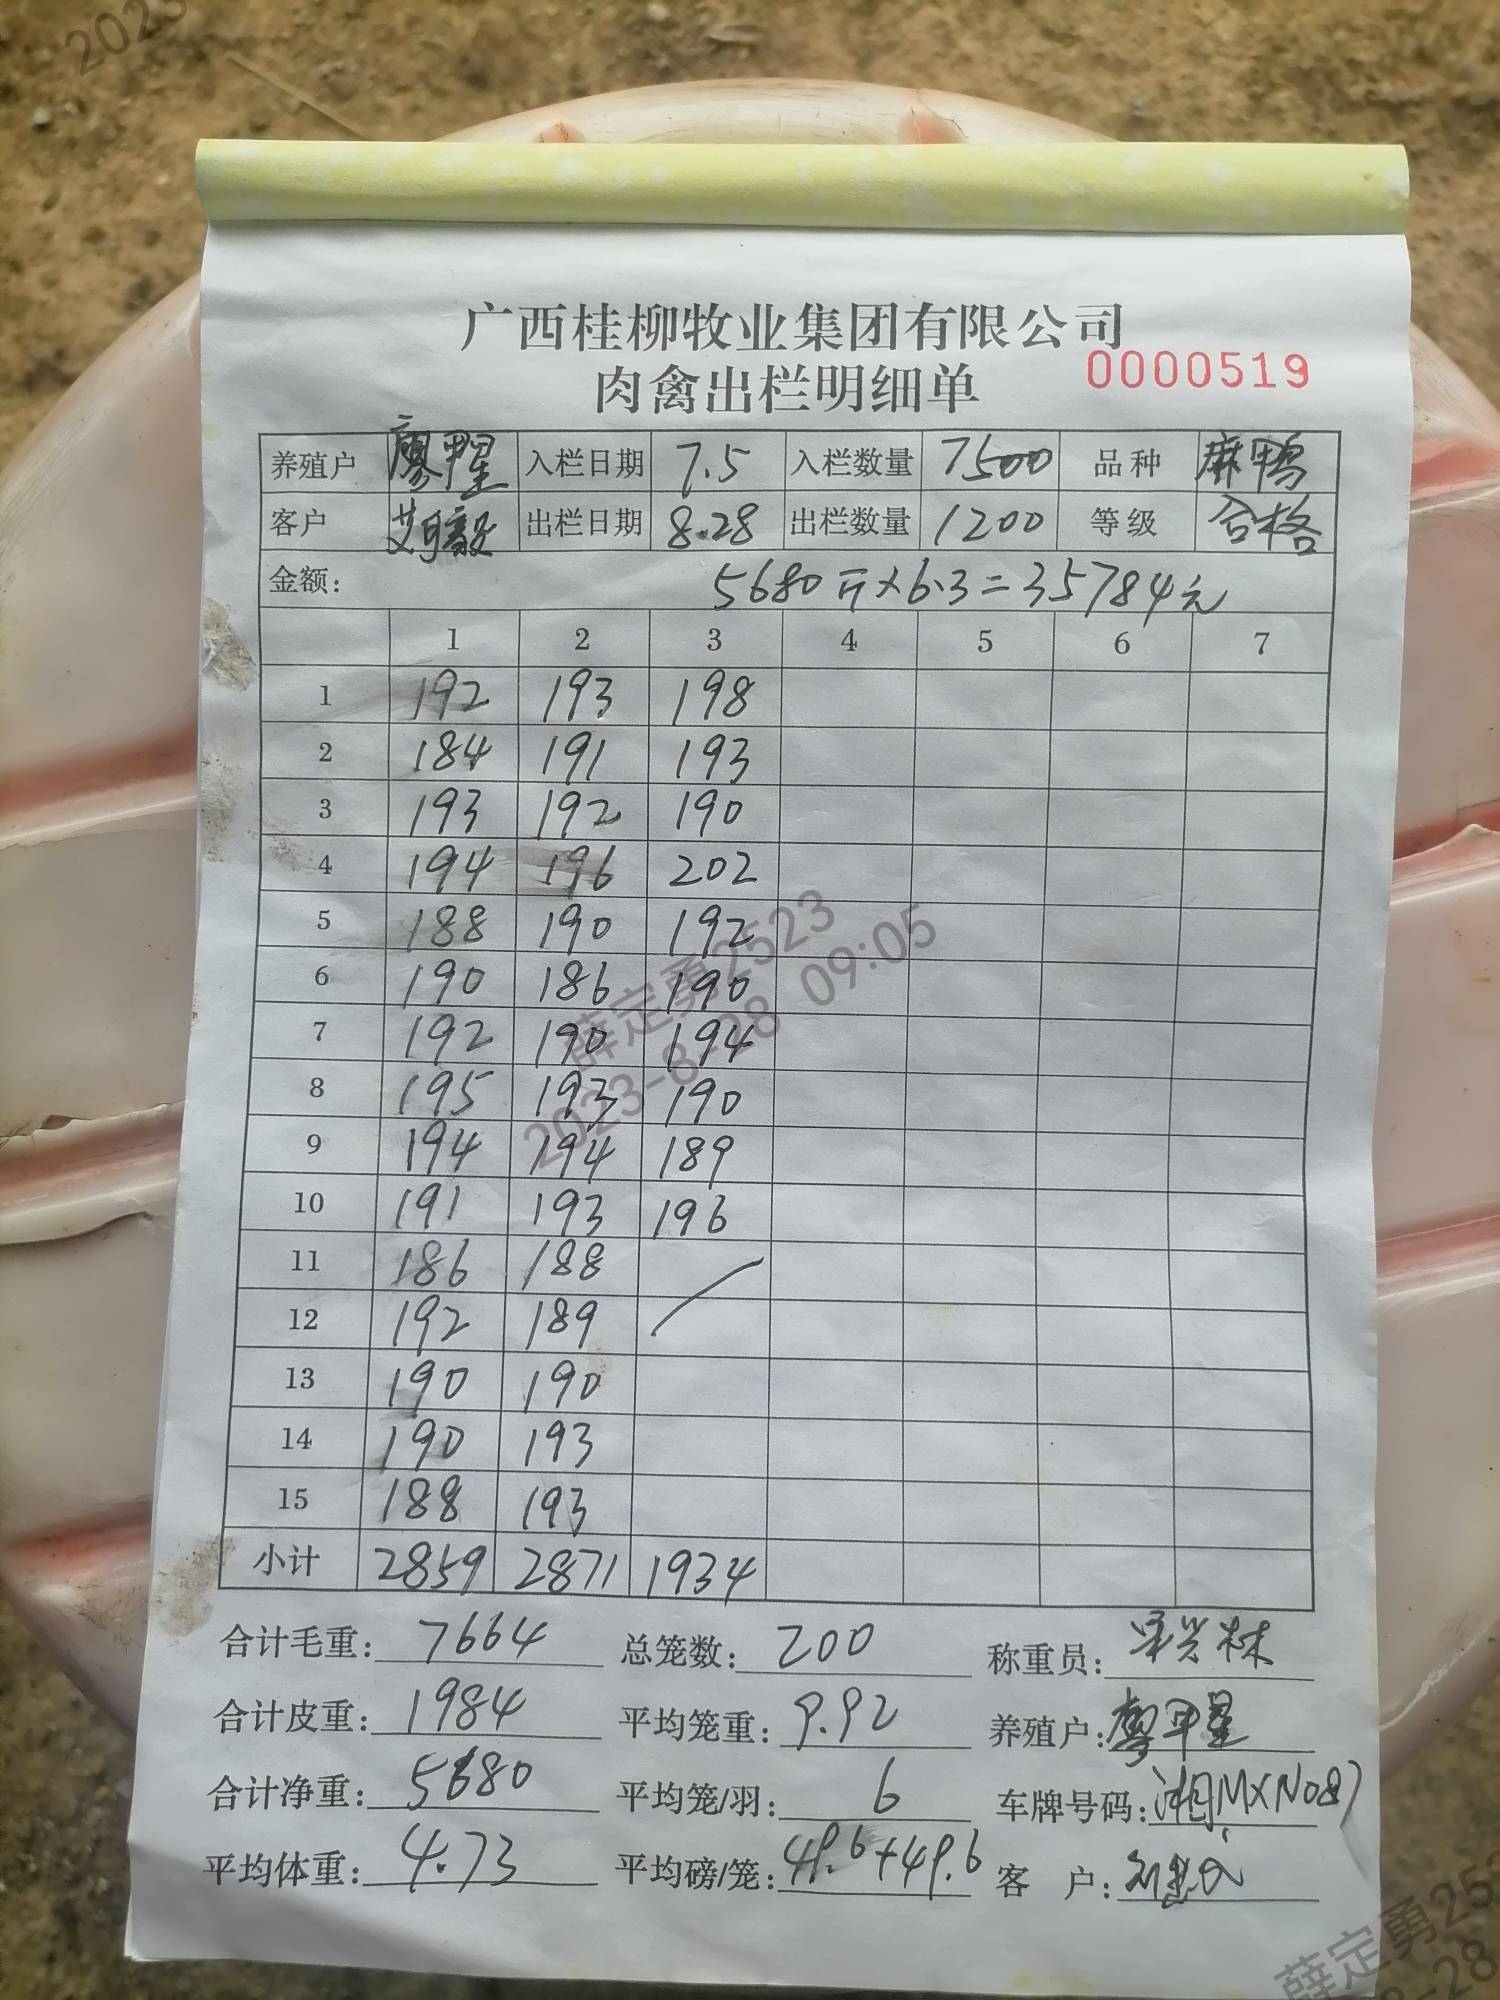 2023
广西桂柳牧业集团有限公司
肉禽出栏明细单 0000519
养殖户 廖甲星 入栏日期 7.5 入栏数量 7500 品种 麻鸭
客户 出栏日期 8.28 出栏数量 1200 等级 合格
金额: 5680斤×6.3=35784元
1 2 3 4 5 6 7
1 192 193 198
2 184 191 193
3 193 192 190
4 194 196 202
5 188 190 192
6 190 186 190
7 192 190 194
8 195 193 190
9 194 194 189
10 191 193 196
11 186 188
12 192 189
13 190 190
14 190 193
15 188 193
小计 2859 2871 1934
合计毛重: 7664 总笼数: 200 称重员:
合计皮重: 1984 平均笼重: 9.92 养殖户: 廖甲星
合计净重: 5680 平均笼/羽: 6 车牌号码: 湘MXN087
平均体重: 4.73 平均磅/笼: 49.6+49.6 客 户:
薛定勇2523
2023-8-28 09:05
薛定勇25
8-28